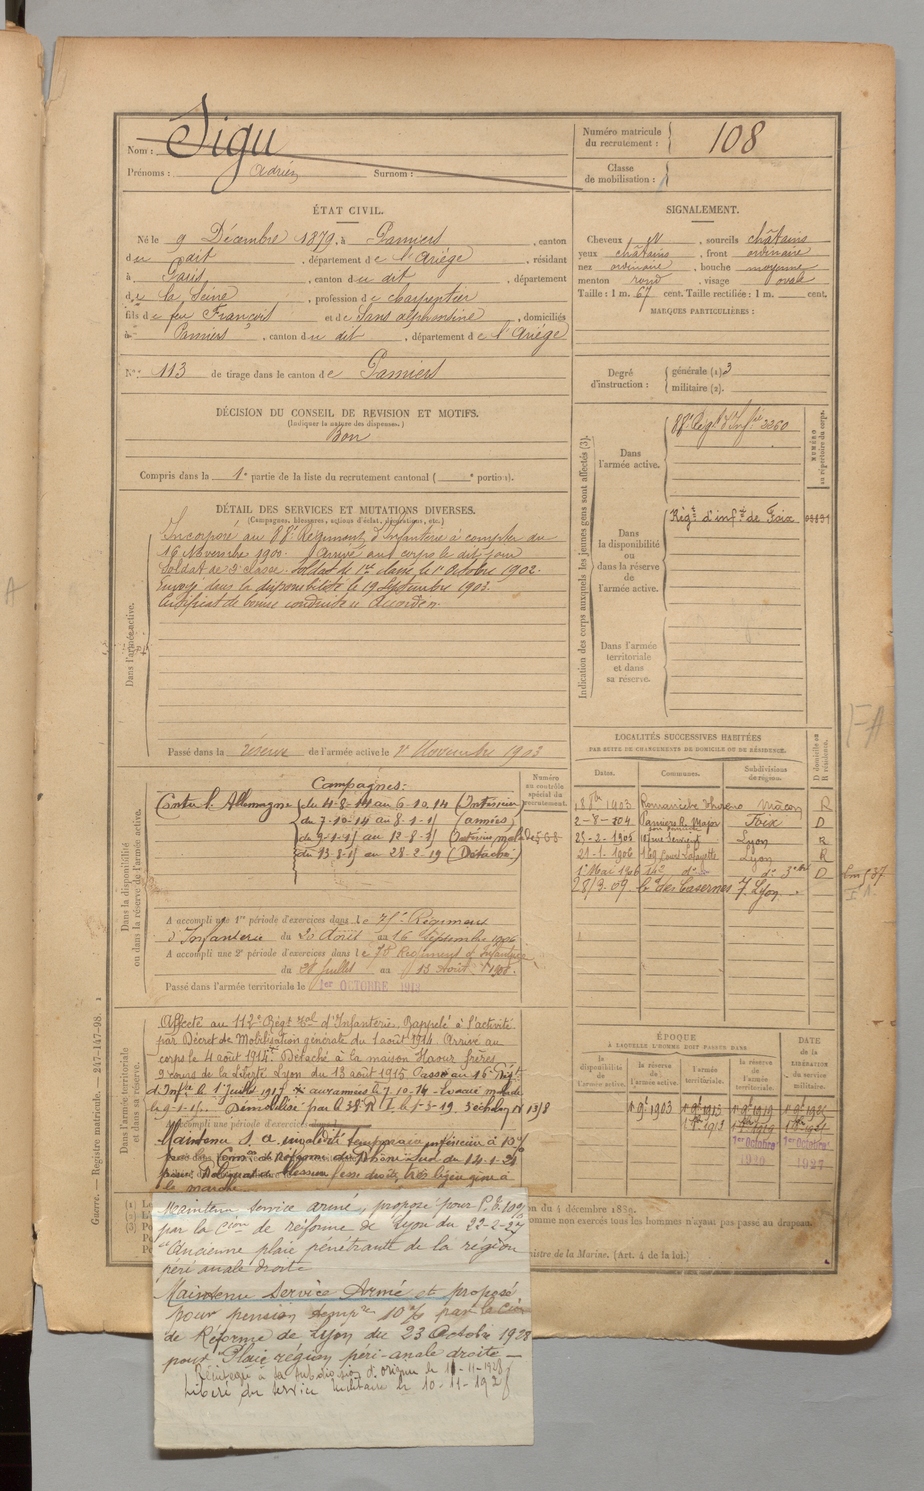 Nom : Sigu
Prénoms : Adrien Surnom :
Numéro matricule du recrutement : 108
Classe de mobilisation :
ÉTAT CIVIL.
Né le 9 Décembre 1879, à Pamiers, canton
du dit, département de l'Ariège, résidant
à Paris, canton du dit, département
de la Seine, profession de charpentier
fils de feu François et de Sans, domiciliés
à Pamiers, canton du dit, département de l'Ariège
N° 113 de tirage dans le canton de Pamiers
SIGNALEMENT.
Cheveux N, sourcils châtains
yeux châtains, front ordinaire
nez ordinaire, bouche moyenne
menton rond, visage ovale
Taille : 1 m. 67 cent. Taille rectifiée : 1 m. cent.
MARQUES PARTICULIÈRES :
Degré d'instruction : générale (2) 3
militaire (2).
DÉCISION DU CONSEIL DE REVISION ET MOTIFS.
(Indiquer la nature des dispenses.)
Bon
Compris dans la 1e partie de la liste du recrutement cantonal ( e portion).
DÉTAIL DES SERVICES ET MUTATIONS DIVERSES.
(Campagnes, blessures, actions d'éclat, décorations, etc.)
Dans l'armée active.
Incorporé au 88e Régiment d'Infanterie à compter du
16 Novembre 1900. Arrivé au corps le dit jour
Soldat de 2e classe. Soldat de 1re classe le 1er Octobre 1902.
Envoyé dans la disponibilité le 19 Septembre 1903.
Certificat de bonne conduite accordé.
Passé dans la réserve de l'armée active le 1er Novembre 1903
Indication des corps auxquels les jeunes gens sont affectés (3).
NUMÉRO au répertoire du corps.
Dans l'armée active.
88e Régt d'Infie 3260
Dans la disponibilité ou dans la réserve de l'armée active.
Régt d'infie de Foix
Dans l'armée territoriale et dans sa réserve.
LOCALITÉS SUCCESSIVES HABITÉES
PAR SUITE DE CHANGEMENTS DE DOMICILE OU DE RÉSIDENCE.
Dates. Communes. Subdivisions de région. D domicile ou R résidence.
1903 Mâcon R
2-8-904 Pamiers R. Major Foix D
23-2-1905 Lyon R
21-1-1906 169 Cours Lafayette Lyon R
1er Mai 1906 162 do do D
28/3 09 des Casernes Lyon
FA
Dans la disponibilité ou dans la réserve de l'armée active.
Numéro au contrôle spécial du recrutement.
Campagnes :
Contre l'Allemagne du 4-8-14 au 6-10-14 (Intérieur)
du 7-10-14 au 8-1-15 (armées)
du 9-1-15 au 12-8-15 (Intérieur malade)
du 13-8-15 au 28-2-19 (Détaché)
A accompli une 1re période d'exercices dans le Régiment
d'Infanterie du 20 Août au 16 Septembre 1906
A accompli une 2e période d'exercices dans le Régiment d'Infanterie
du Juillet au 13 Août 1908.
Passé dans l'armée territoriale le 1er OCTOBRE 1913
Dans l'armée territoriale et dans sa réserve.
Affecté au 112e Régt Tal d'Infanterie. Rappelé à l'activité
par Décret de Mobilisation générale du 1 août 1914. Arrivé au
corps le 4 août 1914. Détaché à la maison Haour frères
9 cours de la Liberté Lyon du 13 août 1915 Passé au 16e Régt
d'Infie le 1er Juillet 1917 aux armées le 7.10.14. Evacué malade
le 9-1-15. Démobilisé par le R I. le 1-3-19.
A accompli une période d'exercices
Maintenu S. A invalidité temporaire inférieure à 10%
par la Comon de Réforme du Rhône Sud du 14-1-20
pour Reliquat de blessure fesse droite, très légère gêne à
la marche
ÉPOQUE
À LAQUELLE L'HOMME DOIT PASSER DANS
la disponibilité de l'armée active. la réserve de l'armée active. l'armée territoriale. la réserve de l'armée territoriale.
DATE de la LIBÉRATION du service militaire.
1903 1913 1919
1er Octobre 1920 1er Octobre 1927
Maintenu service armé, proposé pour P.T. 10%
par la Cion de réforme de Lyon du 22-2-27
"Ancienne plaie pénétrante de la région
péri anale droite
Maintenu Service Armé et proposé
pour pension tempre 10% par la Cion
de Réforme de Lyon du 23 Octobre 1928
pour "Plaie région péri-anale droite —
Réintégré à la subdivision d'origine le 10-11-1928
Libéré du service militaire le 10-11-1928
on du 4 décembre 1889.
omme non exercés tous les hommes n'ayant pas passé au drapeau.
nistre de la Marine. (Art. 4 de la loi.)
Guerre. — Registre matricule. — 247-147-98.